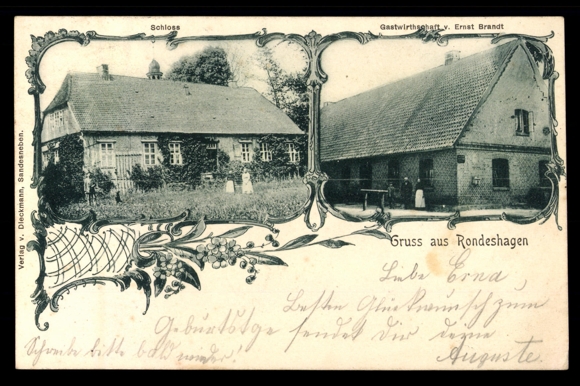 Schloss
Gastwirthschaft v. Ernst Brandt
Verlag v. Dieckmann, Sandesneben.
Gruss aus Rondeshagen
Liebe Erna,
Besten Glückwunsch zum
Geburtstge sendet Dir deine
Auguste.
Schreibe bitte bald wieder!